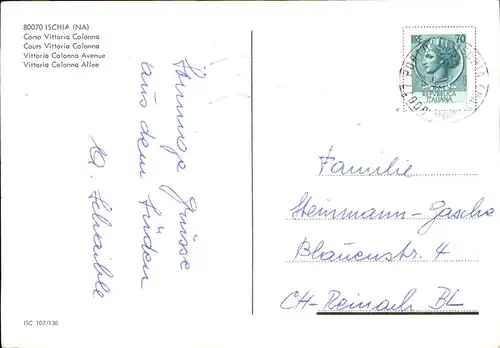 80070 ISCHIA (NA)
Corso Vittoria Colonna
Cours Vittoria Colonna
Vittoria Colonna Avenue
Vittoria Colonna Allee
Sonnige Grüsse
aus dem Süden
Schaible
LIRE 70
REPUBBLICA
ITALIANA
Familie
Steinmann-Gasche
Blauenstr. 4
CH-Reinach BL
ISC 107/130